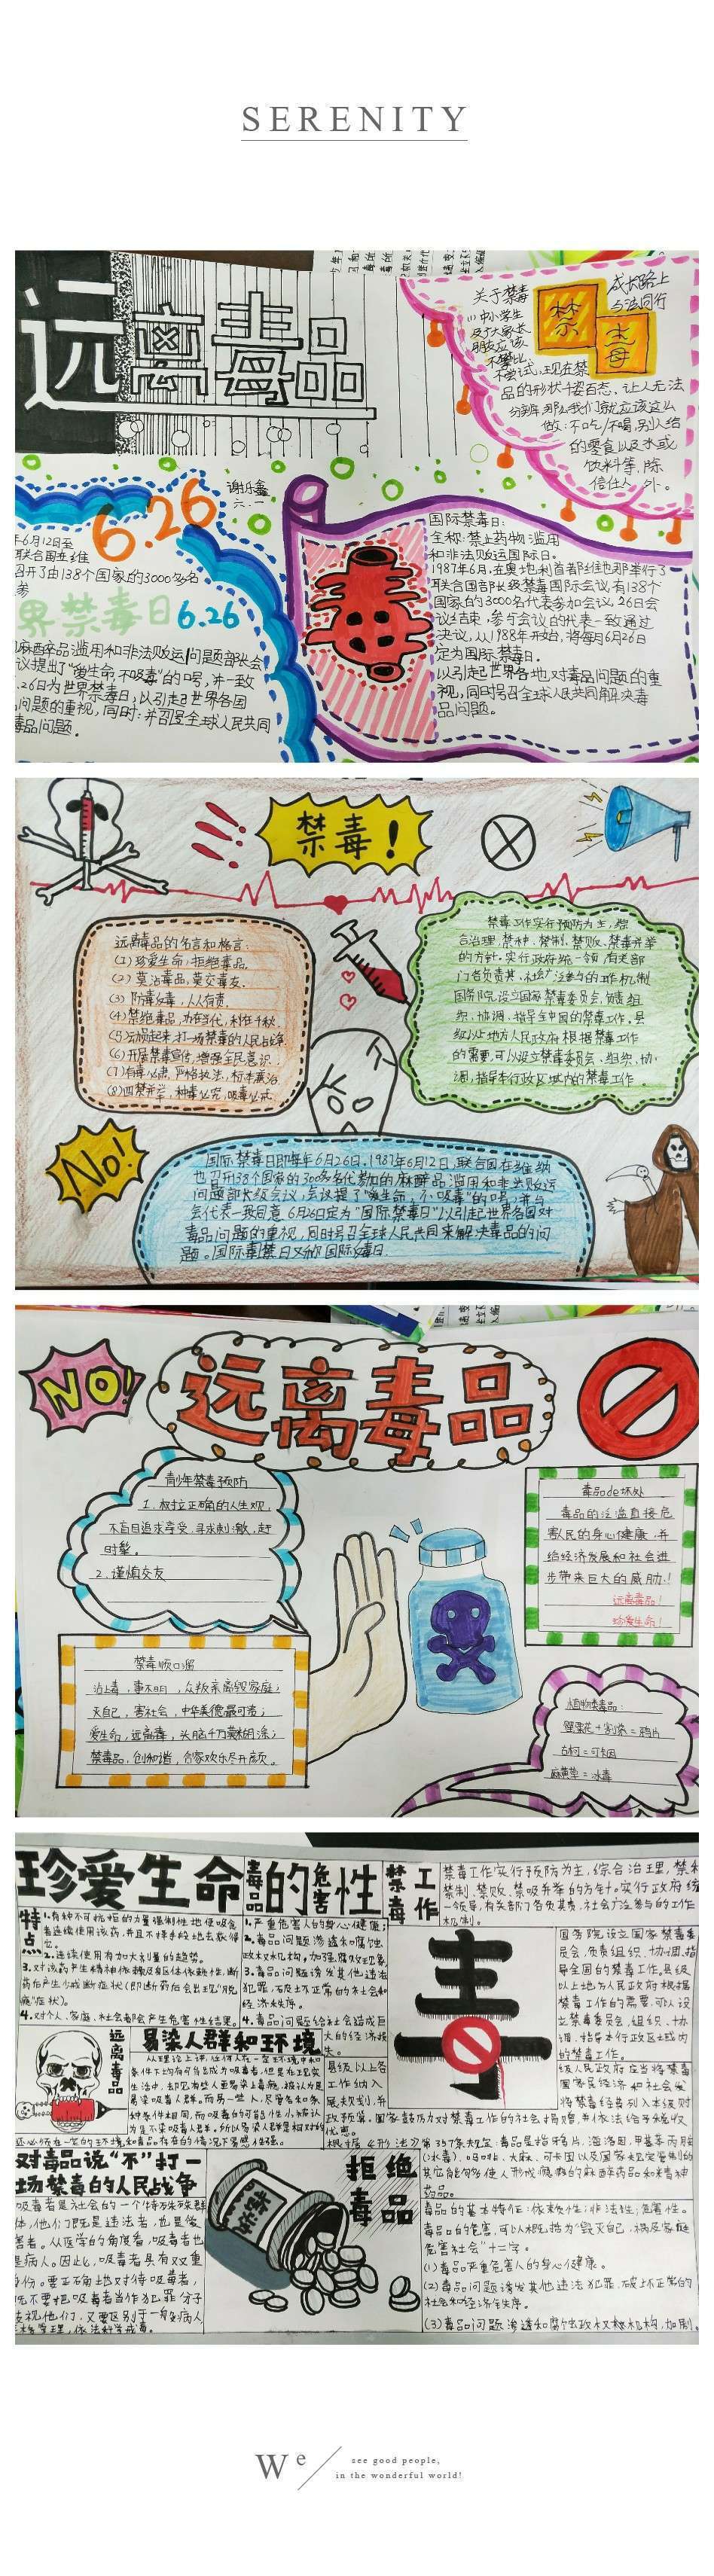 SERENITY
远离毒品
关于禁毒
禁毒
成长路上
与法同行
(1)中小学生
及广大家长
朋友应该
不尝试,现在禁
品的形状千姿百态,让人无法
分辨,那么我们就应该这么
做:不吃/不喝别人给
的零食以及水或
饮料等,陈
信任人 外。
6.26
谢乐鑫
六.一
年6月12日至
联合国在维
召开了由138个国家的3000名名
参
界禁毒日6.26
麻醉品滥用和非法贩运问题部长会
议提出了“爱生命,不吸毒”的口号,并一致
.26日为世界禁毒日,以引起世界各国
问题的重视,同时:并召全球人民共同
毒品问题.
国际禁毒日:
全称:禁止药物滥用
和非法贩运国际日。
1987年6月,在奥地利首都维也那举行了
联合国部长级禁毒国际会议,有138个
国家的3000名代表参加会议,26日会
议结束,参与会议的代表一致通过
决议,从1988年开始,将每月6月26日
定为国际禁毒日。
以引起世界各地对毒品问题的重
视,同时号召全球人民共同解决毒
品问题。
禁毒!
远离毒品的名言和格言:
(1)珍爱生命,拒绝毒品.
(2)莫沾毒品,莫交毒友.
(3)防毒反毒,人人有责.
(4)禁绝毒品,功在当代,利在千秋.
(5)动员起来,打一场禁毒的人民战争
(6)开展禁毒宣传,增强全民意识.
(7)有毒必肃,严格执法,标本兼治
(8)四禁并举,种毒必究,吸毒必戒
禁毒工作实行预防为主,综
合治理,禁种、禁制、禁贩、禁毒并举
的方针。实行政府统一领,有关部
门各负责其、社会广泛参与的工作机制
国务院设立国家禁毒委员会,负责组
织、协调、指导全中国的禁毒工作。县
级以上地方人民政府根据禁毒工作
的需要,可以设立禁毒委员会、组织、协
调、指导本行政区域内的禁毒工作
No!
国际禁毒日即每年6月26日,1987年6月12日,联合国在维纳
也召开38个国家的3000名代参加的麻醉品滥用和非法贩运
问题部长级会议,会议提了“爱生命,不吸毒”的口号,并与
会代表一致同意6月26日定为“国际禁毒日”以引起世界各国对
毒品问题的重视,同时号召全球人民共同来解决毒品的问
题。国际禁毒日又称国际反毒日.
NO!
远离毒品
青少年禁毒预防
1.树立正确的人生观,
不盲目追求享受,寻求刺激,赶
时髦.
2.谨慎交友
毒品de坏处
毒品的泛滥直接危
害人民的身心健康,并
给经济发展和社会进
步带来巨大的威胁!
远离毒品!
珍爱生命!
禁毒顺口溜
沾上毒,事不明,众叛亲离毁家庭;
灭自己,害社会,中华美德最可渣;
爱生命,远离毒,头脑千万莫糊涂;
禁毒品,创和谐,合家欢乐尽开颜。
植物类毒品:
罂粟花+割浆=鸦片
古柯=可卡因
麻黄草=冰毒
珍爱生命
毒品的危害性
禁毒工作
特点
1.有种不可抗拒的力量强制性地使吸食
者连续使用该药,并且不择手段地去获得
它。
2.连续使用有加大剂量的趋势。
3.对该药产生精神依赖及身体依赖性,断
药后产生戒断症状(即断药后会出现“脱
瘾”症状)。
4.对个人、家庭、社会都会产生危害性结果。
1.严重危害人的身心健康;
2.毒品问题渗透和腐蚀
政权水机构,加强腐败现象
3.毒品问题诱发其他违法
犯罪,破坏正常的社会和
经济秩序。
4.毒品问题给社会造成巨
大的经济损
失。
禁毒工作实行预防为主,综合治理,禁种
禁制、禁贩、禁吸并举的方针。实行政府统
一领导,有关部门各负其责、社会广泛参与的工作
机制。
毒
国务院设立国家禁毒委
员会,负责组织、协调、指
导全国的禁毒工作。县级
以上地方人民政府根据
禁毒工作的需要,可以设
立禁毒委员会、组织、协
调、指导本行政区域内
的禁毒工作。
级人民政府应当将禁毒
国家民经济和社会发
将禁毒经费列入本级财
远离毒品
易染人群和环境
县级以上各
工作纳入
展规划,并
政预算。国家鼓励对禁毒工作的社会捐赠,并依法给予税收
优惠。
对毒品说“不”打一
场禁毒的人民战争
吸毒者是社会的一个特殊群
体,他们既是违法者,也是受
害者。从医学的角度看,吸毒者也
是病人。因此,吸毒者具有双重
身份。要正确地对待吸毒者,
既不要把吸毒者当作犯罪分子
歧视他们,又要区别于一般病人
拒绝毒品
根据《刑法》第357条规定:毒品是指鸦片、海洛因、甲基苯丙胺
(冰毒)、吗啡、大麻、可卡因以及国家规定管制的
其它能够使人形成瘾癖的麻醉药品和精神
药品。
毒品的基本特征:依赖性;非法性;危害性。
毒品的危害,可以概括为“毁灭自己,祸及家庭
危害社会”十二字。
(1)毒品严重危害人的身心健康。
(2)毒品问题诱发其他违法犯罪,破坏正常的
社会和经济秩序。
(3)毒品问题渗透和腐蚀政权机构,加剧
We
see good people,
in the wonderful world!